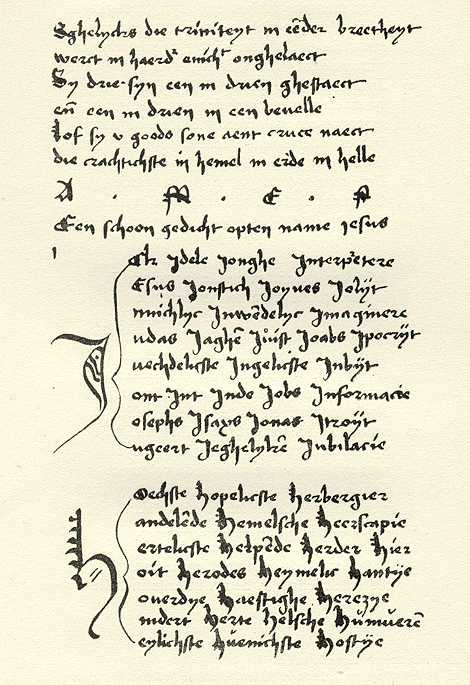 Eghelycks die triniteyt in eēder breetheyt
werct in haerdr̄ eincht̄ onghelaect
Sy drie syn een in drien ghestaect
en̄ een in drien in een bevelle
lof sy v goods sone aent cruce naect
die crachtichste in hemel in erde in helle
A . M . E . N
Een schoon gedicht opten name Jesus
1
Ck Idele Jonghe Interpretere
Esus Jonstich Joyues Jolijt
nnichlyc Inwēdelyc Imaginere
udas Jaghē Juist Joabs Ipocrijt
uechdelicste Ingelicste Inbijt
ont Int Inde Jobs Informacie
osephs Isays Jonas Itroijt
ugeert Jeghelykē Jubilacie
J
oechste hopelicste herbergier
andelēde hemelsche heerscapie
ertelicste helpēde herder hier
oit herodes heymelic hantije
overdye haestighe herezye
ndert herte helsche hūmuerē
eylichste huenichste hostije
h